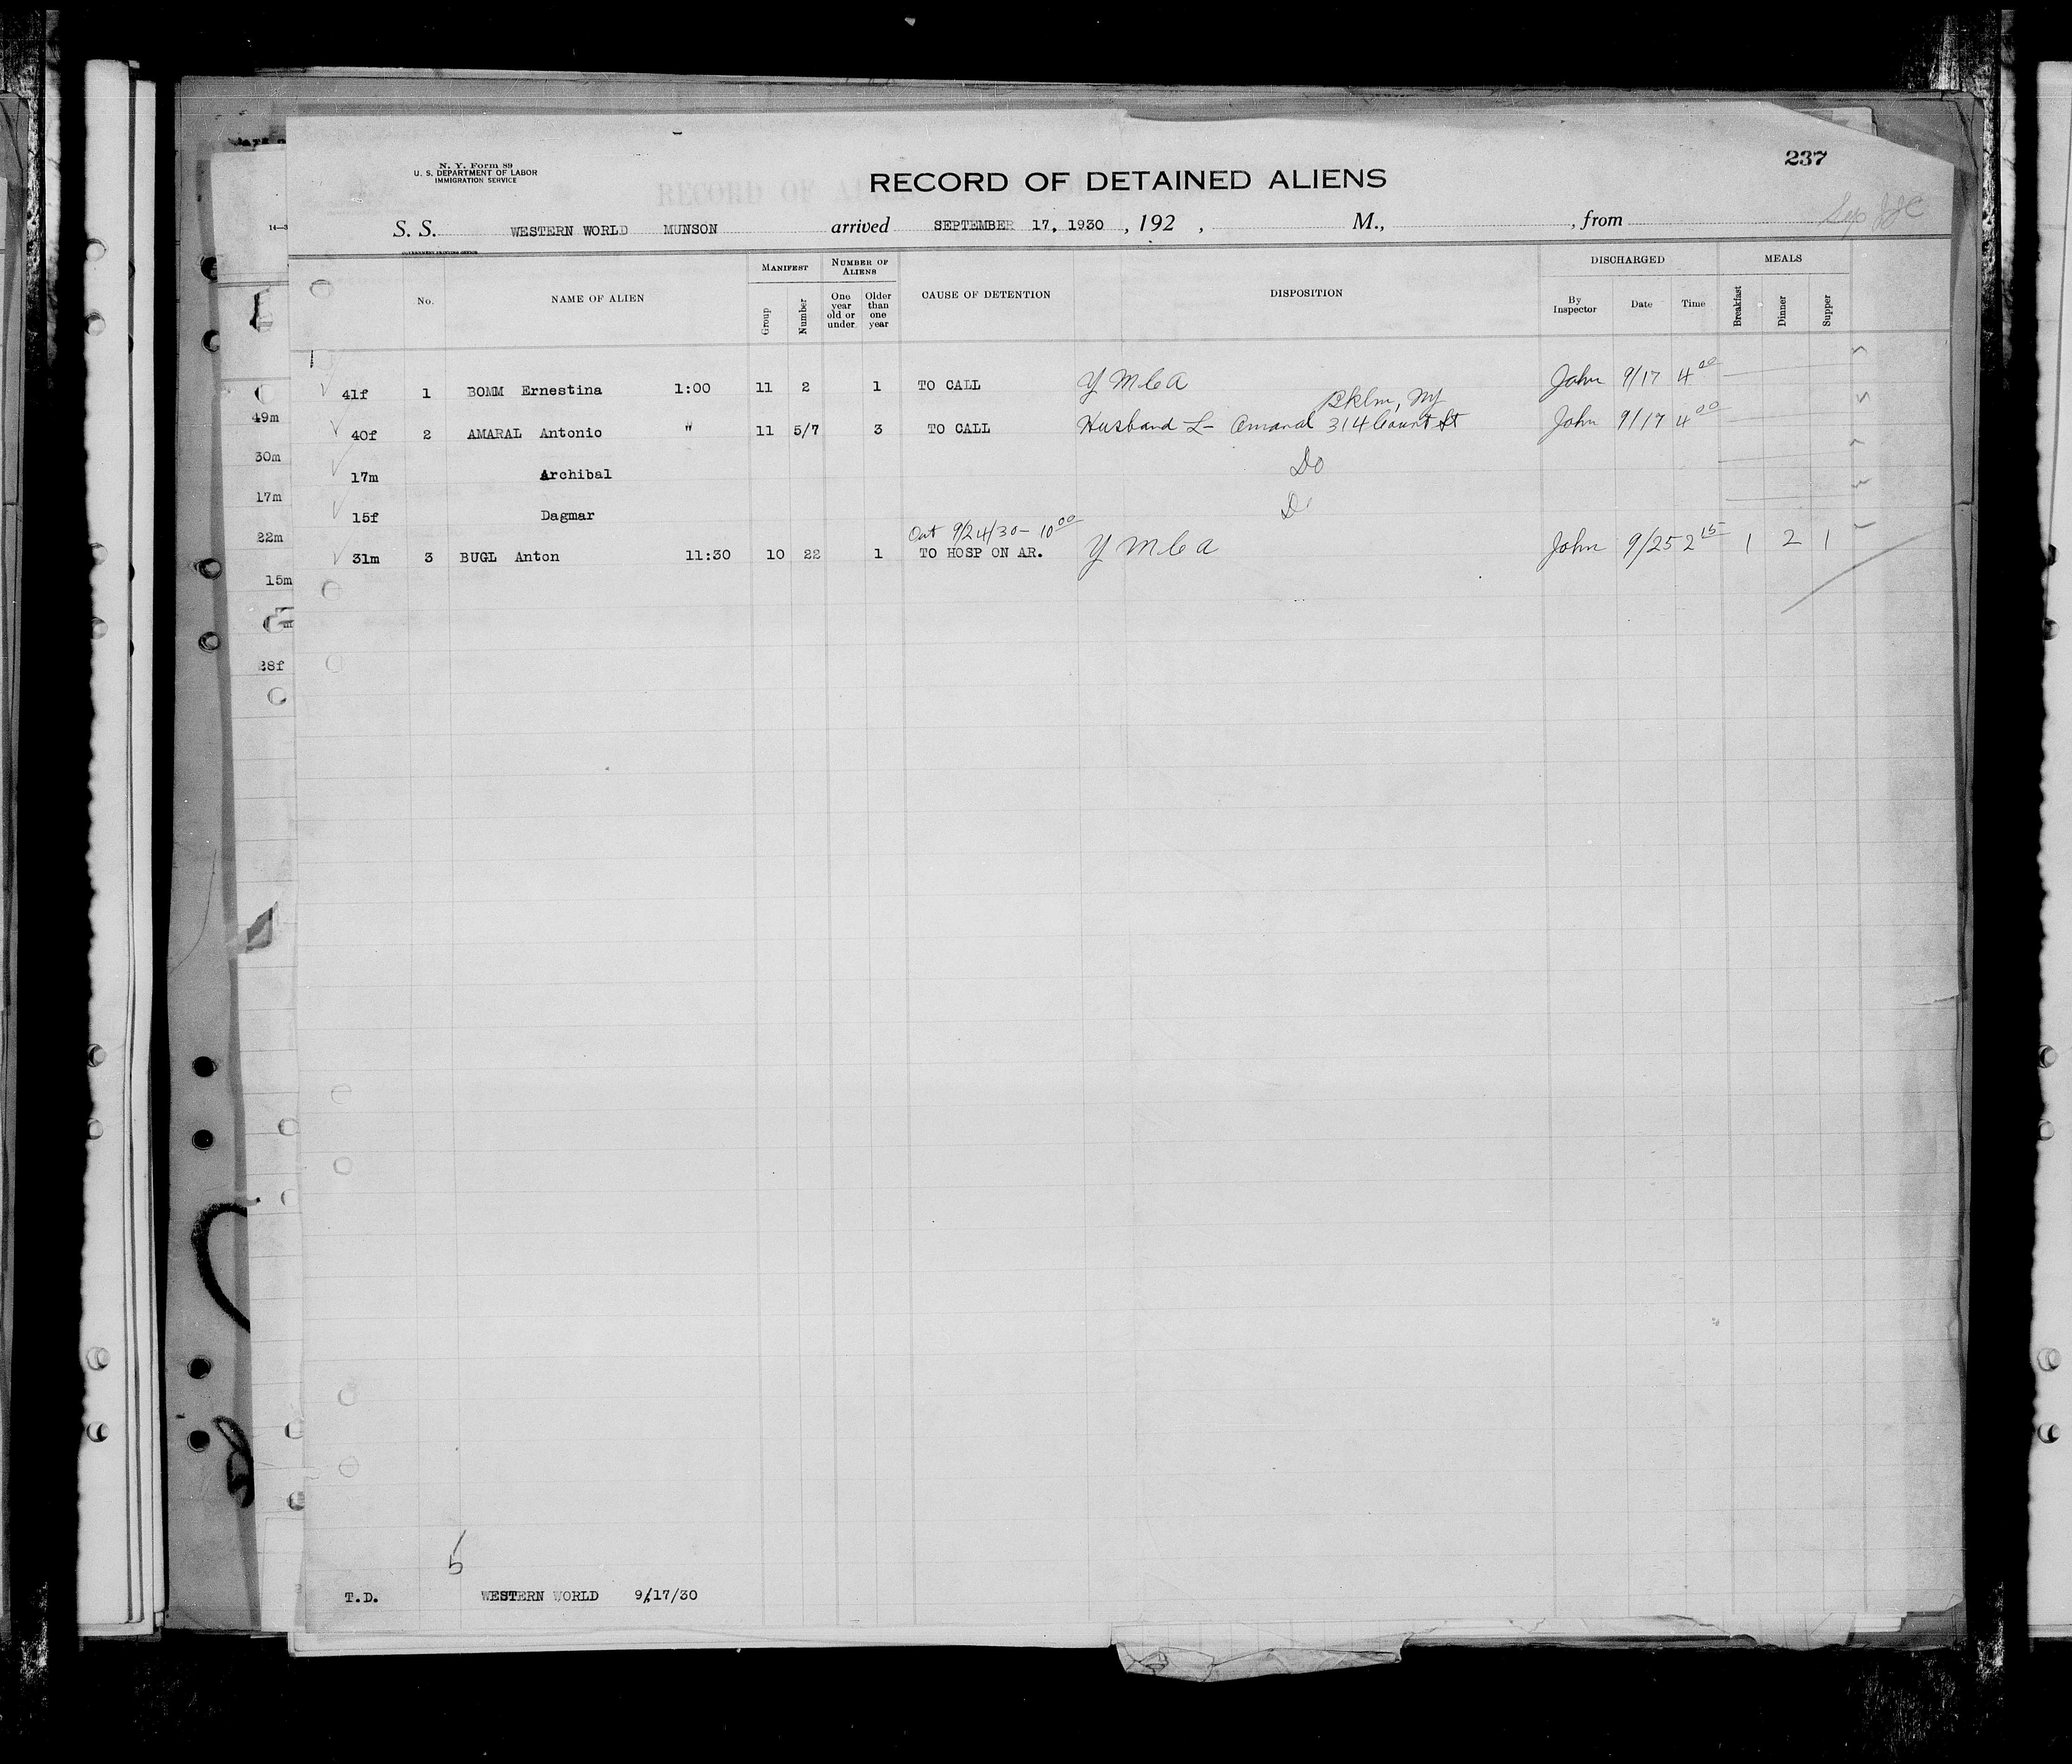 237
N. Y. Form 89
U. S. DEPARTMENT OF LABOR
IMMIGRATION SERVICE
RECORD OF DETAINED ALIENS
S. S. WESTERN WORLD MUNSON arrived SEPTEMBER 17, 1930 , 192 , M., , from
GOVERNMENT PRINTING OFFICE
No. NAME OF ALIEN MANIFEST Group Number NUMBER OF ALIENS One year old or under Older than one year CAUSE OF DETENTION DISPOSITION DISCHARGED By Inspector Date Time MEALS Breakfast Dinner Supper
41f 1 BOMM Ernestina 1:00 11 2 1 TO CALL Y M C A John 9/17 4 00
Bklm, NY
40f 2 AMARAL Antonio " 11 5/7 3 TO CALL Husband L- Amaral 314 Court St John 9/17 4 00
17m Archibal Do
15f Dagmar Do
Out 9/24/30 - 10 00
31m 3 BUGL Anton 11:30 10 22 1 TO HOSP ON AR. Y M C A John 9/25 2 15 1 2 1
49m
30m
17m
22m
15m
28f
5
T.D. WESTERN WORLD 9/17/30